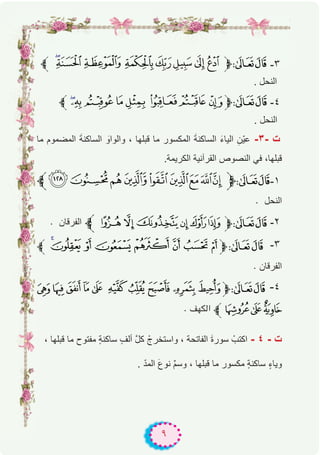 ٣- قَالَ تَعَالَى: ﴿ ٱدْعُ إِلَىٰ سَبِيلِ رَبِّكَ بِٱلْحِكْمَةِ وَٱلْمَوْعِظَةِ ٱلْحَسَنَةِ ۖ ﴾
النحل .
٤- قَالَ تَعَالَى: ﴿ وَإِنْ عَاقَبْتُمْ فَعَاقِبُوا۟ بِمِثْلِ مَا عُوقِبْتُم بِهِۦ ﴾
النحل .
ت -٣- عيّن الياءَ الساكنةَ المكسور ما قبلها ، والواوَ الساكنةَ المضموم ما
قبلها، في النصوص القرآنية الكريمة.
١- قَالَ تَعَالَى: ﴿ إِنَّ ٱللَّهَ مَعَ ٱلَّذِينَ ٱتَّقَوا۟ وَّٱلَّذِينَ هُم مُّحْسِنُونَ ١٢٨ ﴾
النحل .
٢- قَالَ تَعَالَى: ﴿ وَإِذَا رَأَوْكَ إِن يَتَّخِذُونَكَ إِلَّا هُزُوًا ﴾ الفرقان .
٣- قَالَ تَعَالَى: ﴿ أَمْ تَحْسَبُ أَنَّ أَكْثَرَهُمْ يَسْمَعُونَ أَوْ يَعْقِلُونَ ۚ ﴾
الفرقان .
٤- قَالَ تَعَالَى: ﴿ وَأُحِيطَ بِثَمَرِهِۦ فَأَصْبَحَ يُقَلِّبُ كَفَّيْهِ عَلَىٰ مَآ أَنفَقَ فِيهَا وَهِىَ
خَاوِيَةٌ عَلَىٰ عُرُوشِهَا ﴾ الكهف .
ت - ٤ - اكتبْ سورةَ الفاتحة ، واستخرجْ كلَّ ألفٍ ساكنةٍ مفتوح ما قبلها ،
وياءٍ ساكنةٍ مكسور ما قبلها ، وسمِّ نوعَ المدِّ .
٩